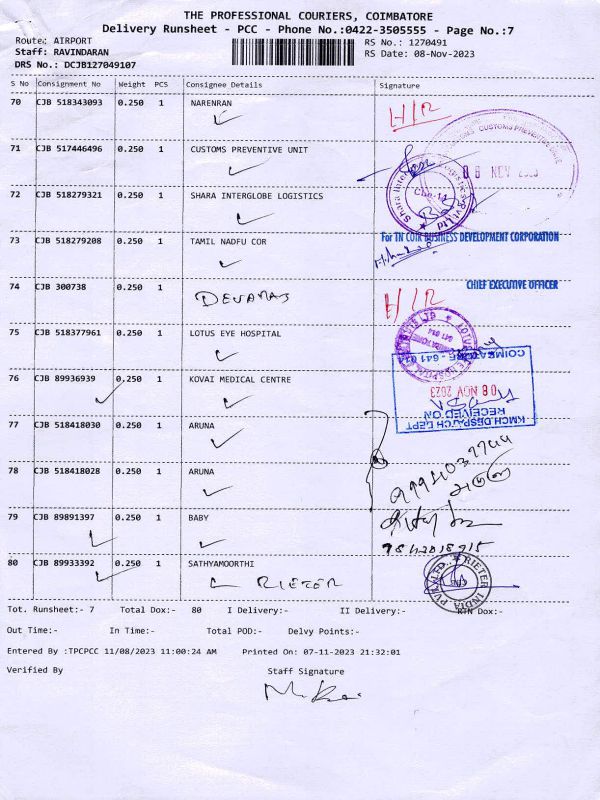 THE PROFESSIONAL COURIERS, COIMBATORE
Delivery Runsheet - PCC - Phone No.:0422-3505555 - Page No.:7
Route: AIRPORT RS No.: 1270491
Staff: RAVINDARAN RS Date: 08-Nov-2023
DRS No.: DCJB127049107
S No Consignment No Weight PCS Consignee Details Signature
70 CJB 518343093 0.250 1 NARENRAN H/R
71 CJB 517446496 0.250 1 CUSTOMS PREVENTIVE UNIT
CUSTOMS PREVENTIVE UNIT
08 NOV 2023
72 CJB 518279321 0.250 1 SHARA INTERGLOBE LOGISTICS
73 CJB 518279208 0.250 1 TAMIL NADFU COR
For TN COIR BUSINESS DEVELOPMENT CORPORATION
74 CJB 300738 0.250 1 DEVARAJ H/R
CHIEF EXECUTIVE OFFICER
75 CJB 518377961 0.250 1 LOTUS EYE HOSPITAL
76 CJB 89936939 0.250 1 KOVAI MEDICAL CENTRE
KMCH DESPATCH DEPT
RECEIVED ON
08 NOV 2023
COIMBATORE - 641 014
77 CJB 518418030 0.250 1 ARUNA
78 CJB 518418028 0.250 1 ARUNA
79 CJB 89891397 0.250 1 BABY
80 CJB 89933392 0.250 1 SATHYAMOORTHI
RIETER
RIETER INDIA PVT. LTD.
Tot. Runsheet:- 7 Total Dox:- 80 I Delivery:- II Delivery:- RTN Dox:-
Out Time:- In Time:- Total POD:- Delvy Points:-
Entered By :TPCPCC 11/08/2023 11:00:24 AM Printed On: 07-11-2023 21:32:01
Verified By Staff Signature